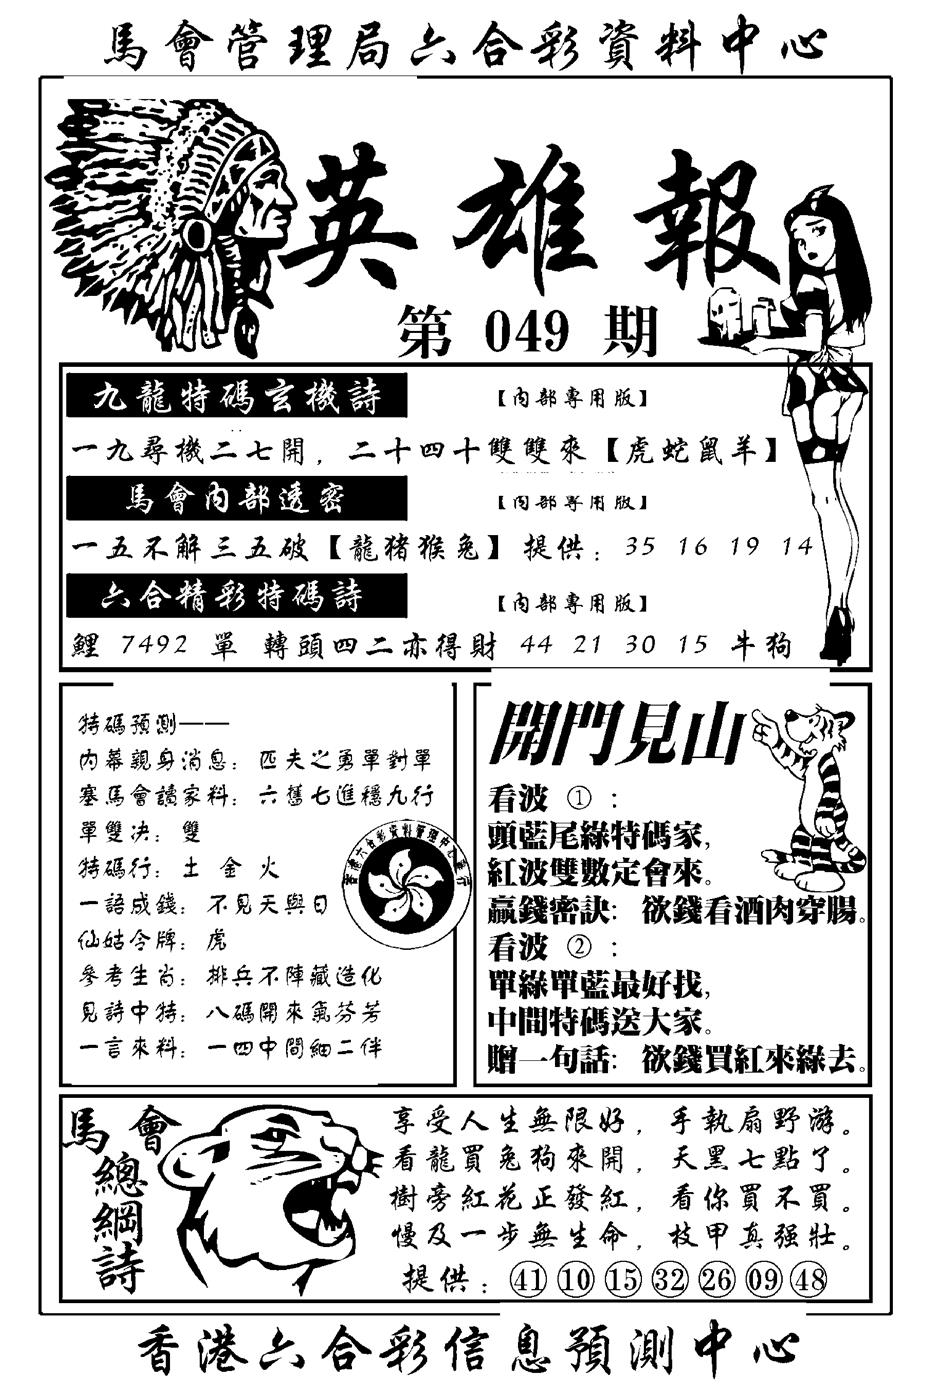 馬會管理局六合彩資料中心
英雄報
第 049 期
九龍特碼玄機詩 【內部專用版】
一九尋機二七開，二十四十雙雙來【虎蛇鼠羊】
馬會內部透密 【內部專用版】
一五不解三五破【龍猪猴兔】 提供：35 16 19 14
六合精彩特碼詩 【內部專用版】
鯉 7492 單 轉頭四二亦得財 44 21 30 15 牛狗
特碼預測——
內幕親身消息：匹夫之勇單對單
塞馬會讀家料：六舊七進穩九行
單雙决：雙
特碼行：土 金 火
一語成錢：不見天與日
仙姑令牌：虎
參考生肖：排兵不陣藏造化
見詩中特：八碼開來氣芬芳
一言來料：一四中間細二伴
香港六合彩資料管理中心發行
開門見山
看波 ①：
頭藍尾綠特碼家，
紅波雙數定會來。
贏錢密訣：欲錢看酒肉穿腸。
看波 ②：
單綠單藍最好找，
中間特碼送大家。
贈一句話：欲錢買紅來綠去。
馬會
總綱詩
享受人生無限好，手執扇野游。
看龍買兔狗來開，天黑七點了。
樹旁紅花正發紅，看你買不買。
慢及一步無生命，枝甲真强壯。
提供：㊶⑩⑮㉜㉖09㊽
香港六合彩信息預測中心